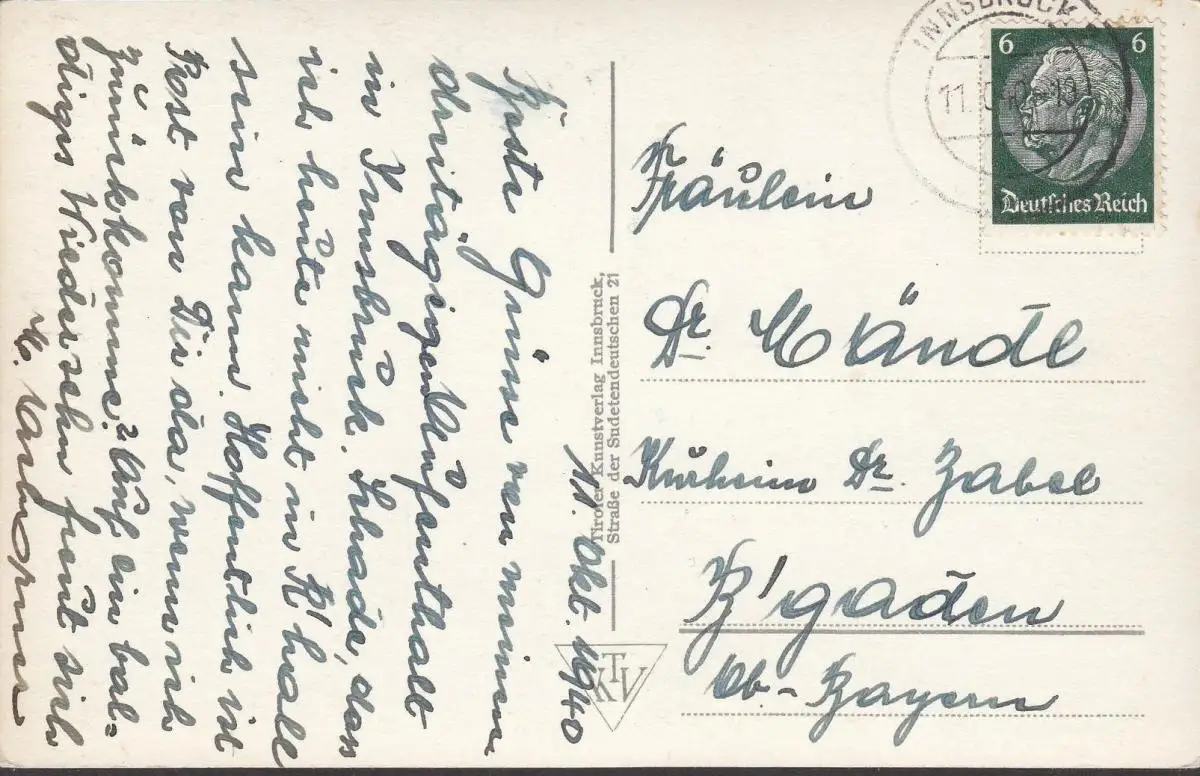 11. Okt. 1940
Beste Grüsse von meinem
dreitägigen Aufenthalt
in Innsbruck. Schade, dass
ich heute nicht in R'hall
sein kann. Hoffentlich ist
Post von Dir da, wenn ich
zurückkomme. Auf ein bal-
diges Wiedersehen freut sich
Tiroler Kunstverlag Innsbruck,
Straße der Sudetendeutschen 21
KTV
INNSBRUCK
6 6
Deutsches Reich
Fräulein
Dr. Mändl
Kurheim Dr. Zabel
B'gaden
Ob-Bayern